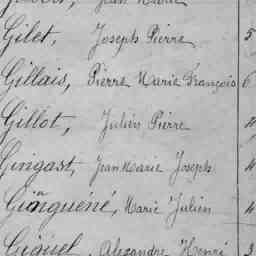 Jean Marie
Gilet, Joseph Pierre 5
Gillais, Pierre Marie François 6
Gillot, Julien Pierre 4
Gingast, Jean Marie Joseph 4
Ginguéné, Marie Julien 4
Giquel, Alexandre Henri 3